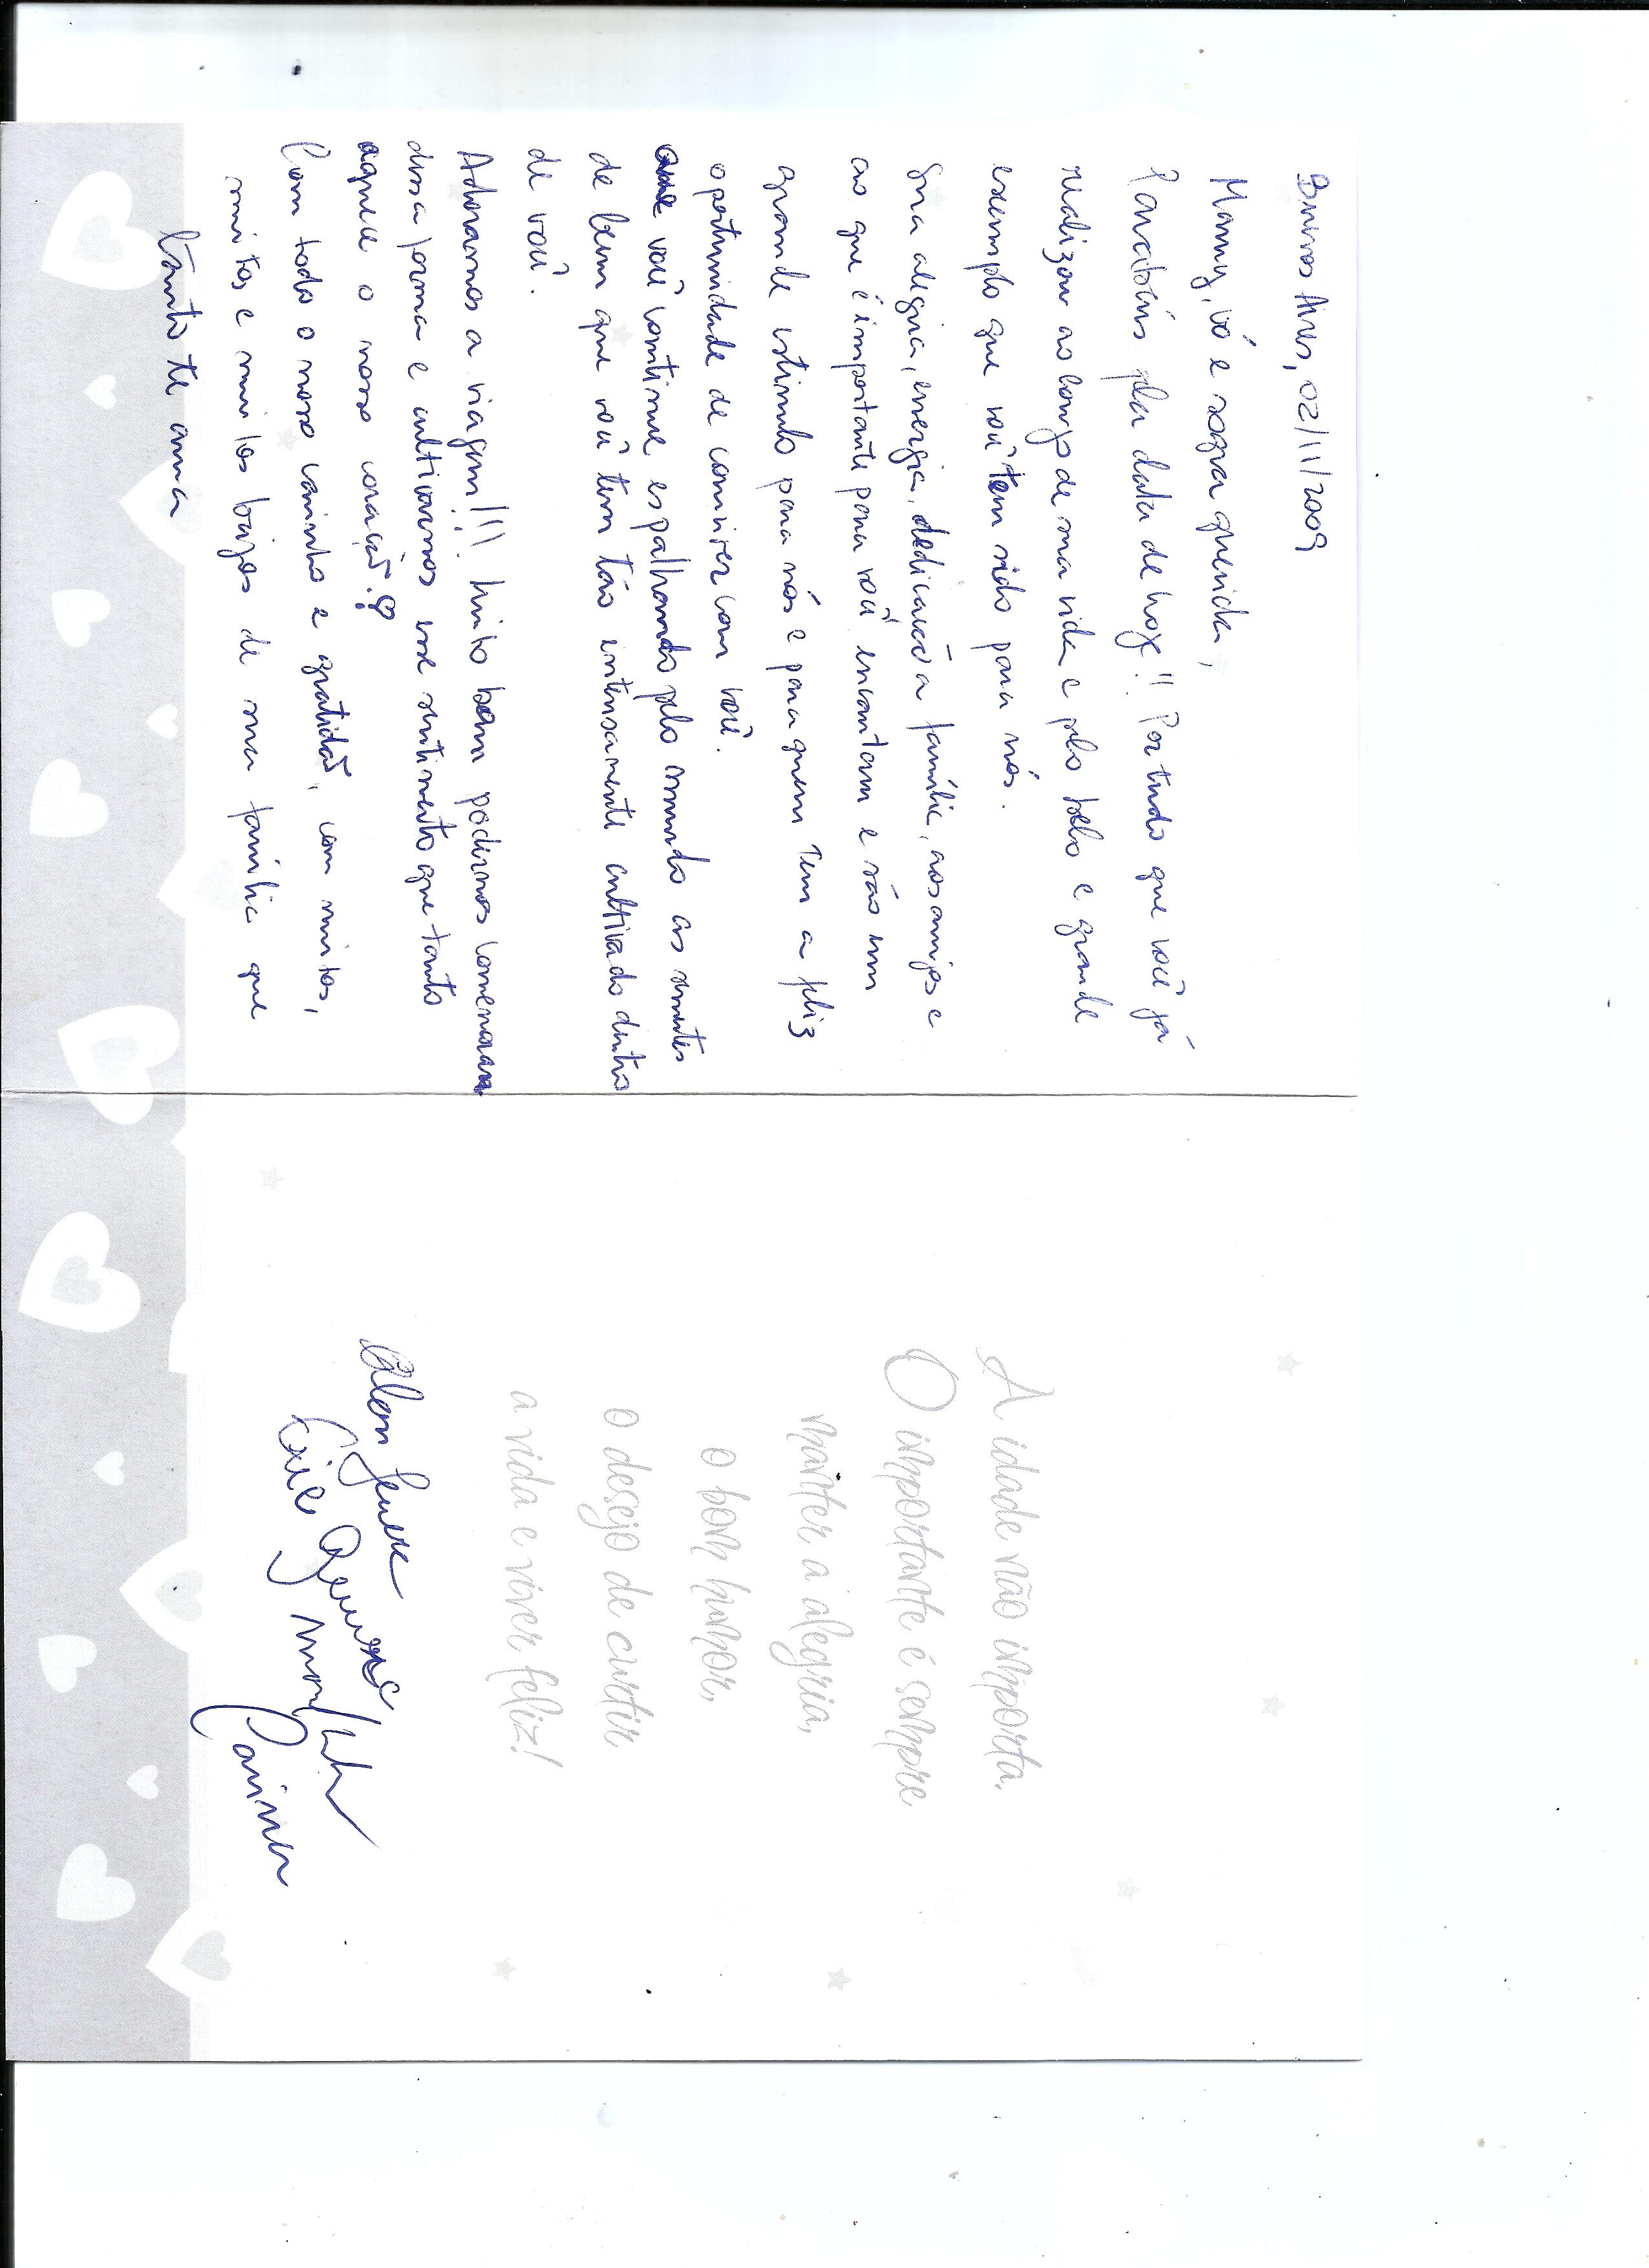 Buenos Aires, 02/11/2009
Mamy, vó e sogra querida,
Parabéns pela data de hoje!! Por tudo que você já
realizou ao longo de sua vida e pelo belo e grande
exemplo que você tem sido para nós.
Sua alegria, energia, dedicação a família, aos amigos e
ao que é importante para você encantam e são um
grande estímulo para nós e para quem tem a feliz
oportunidade de conviver com você.
Que você continue espalhando pelo mundo as sementes
de bem que você tem tão intensamente cultivado dentro
de você.
Adoramos a viagem!!! Muito bom podermos comemorar
dessa forma e cultivarmos esse sentimento que tanto
aquece o nosso coração!
Com todo o nosso carinho e gratidão, com muitos,
muitos e muitos beijos de sua família que
tanto te ama
A idade não importa.
O importante é sempre
manter a alegria,
o bom humor,
o desejo de curtir
a vida e viver feliz!
Carina